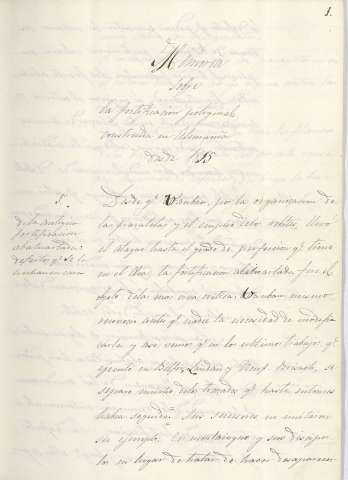 1.
Memoria
sobre
la fortificacion poligonal
construida en Alemania
desde 1815
De la antigua
fortificacion
abaluartada:
defectos qe. se le
Desde qe. Vauban, por la organizacion de
las paralelas y el empleo de los rebotes, llevó
el ataque hasta el grado de perfeccion qe. tiene
en el dia, la fortificacion abaluartada fue el
objeto de las mas viva critica. Vauban mismo
reconocio antes qe. nadie la necesidad de modifi-
carla y asi, vemos qe. en los ultimos trabajos qe.
ejecutó en Belfort, Landau y Neuf Brisach, se
separó mucho del trazado qe. hasta entonces
habia seguido. Sus sucesores no imitaron
su ejemplo. Cormontaigne y sus discipu-
los en lugar de tratar de hacer desaparecer